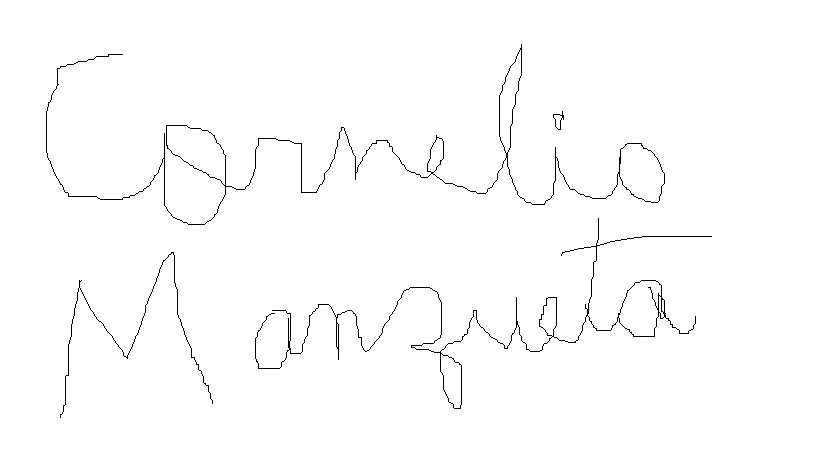 Cornelio
Manzueta